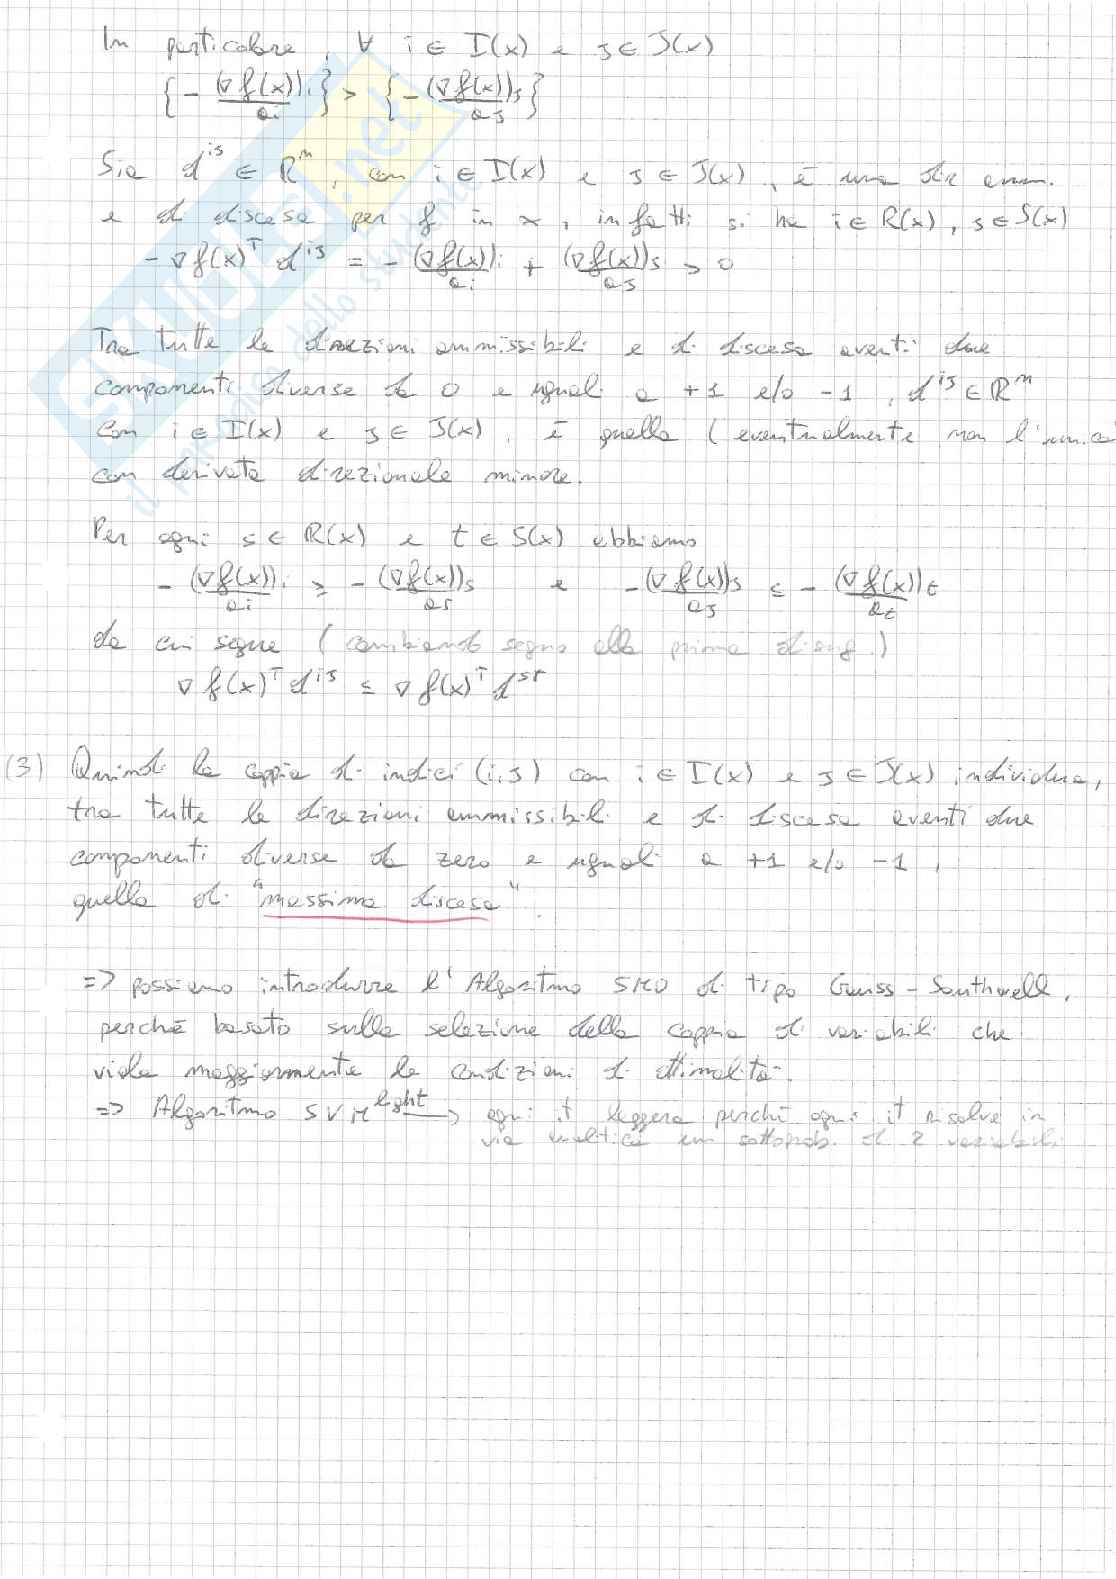 In particolare, ∀ i ∈ I(x) e j ∈ J(x)
{ - (∇f(x))i / ai } > { - (∇f(x))j / aj }
Sia d^ij ∈ R^n, con i ∈ I(x) e j ∈ J(x), è una dir amm.
e di discesa per f in x, infatti si ha i ∈ R(x), j ∈ S(x)
- ∇f(x)^T d^ij = - (∇f(x))i / ai + (∇f(x))j / aj > 0
Tra tutte le direzioni ammissibili e di discesa aventi due
componenti diverse da 0 e uguali a +1 e/o -1, d^ij ∈ R^n
con i ∈ I(x) e j ∈ J(x), è quella (eventualmente non l'unica
con derivata direzionale minore.
Per ogni s ∈ R(x) e t ∈ S(x) abbiamo
- (∇f(x))i / ai ≥ - (∇f(x))s / as e - (∇f(x))j / aj ≤ - (∇f(x))t / at
da cui segue (cambiando segno alla prima diseg.)
∇f(x)^T d^ij ≤ ∇f(x)^T d^st
(3) Quindi la coppia di indici (i,j) con i ∈ I(x) e j ∈ J(x) individua,
tra tutte le direzioni ammissibili e di discesa aventi due
componenti diverse da zero e uguali a +1 e/o -1,
quella di "massima discesa".
=> possiamo introdurre l'Algoritmo SMO di tipo Gauss-Southwell,
perchè basato sulla selezione della coppia di variabili che
viola maggiormente le condizioni di ottimalità.
=> Algoritmo SVM^light → ogni it leggera perchè ogni it risolve in
via analitica un sottoprob. di 2 variabili
SKUOLA.net
il paradiso dello studente